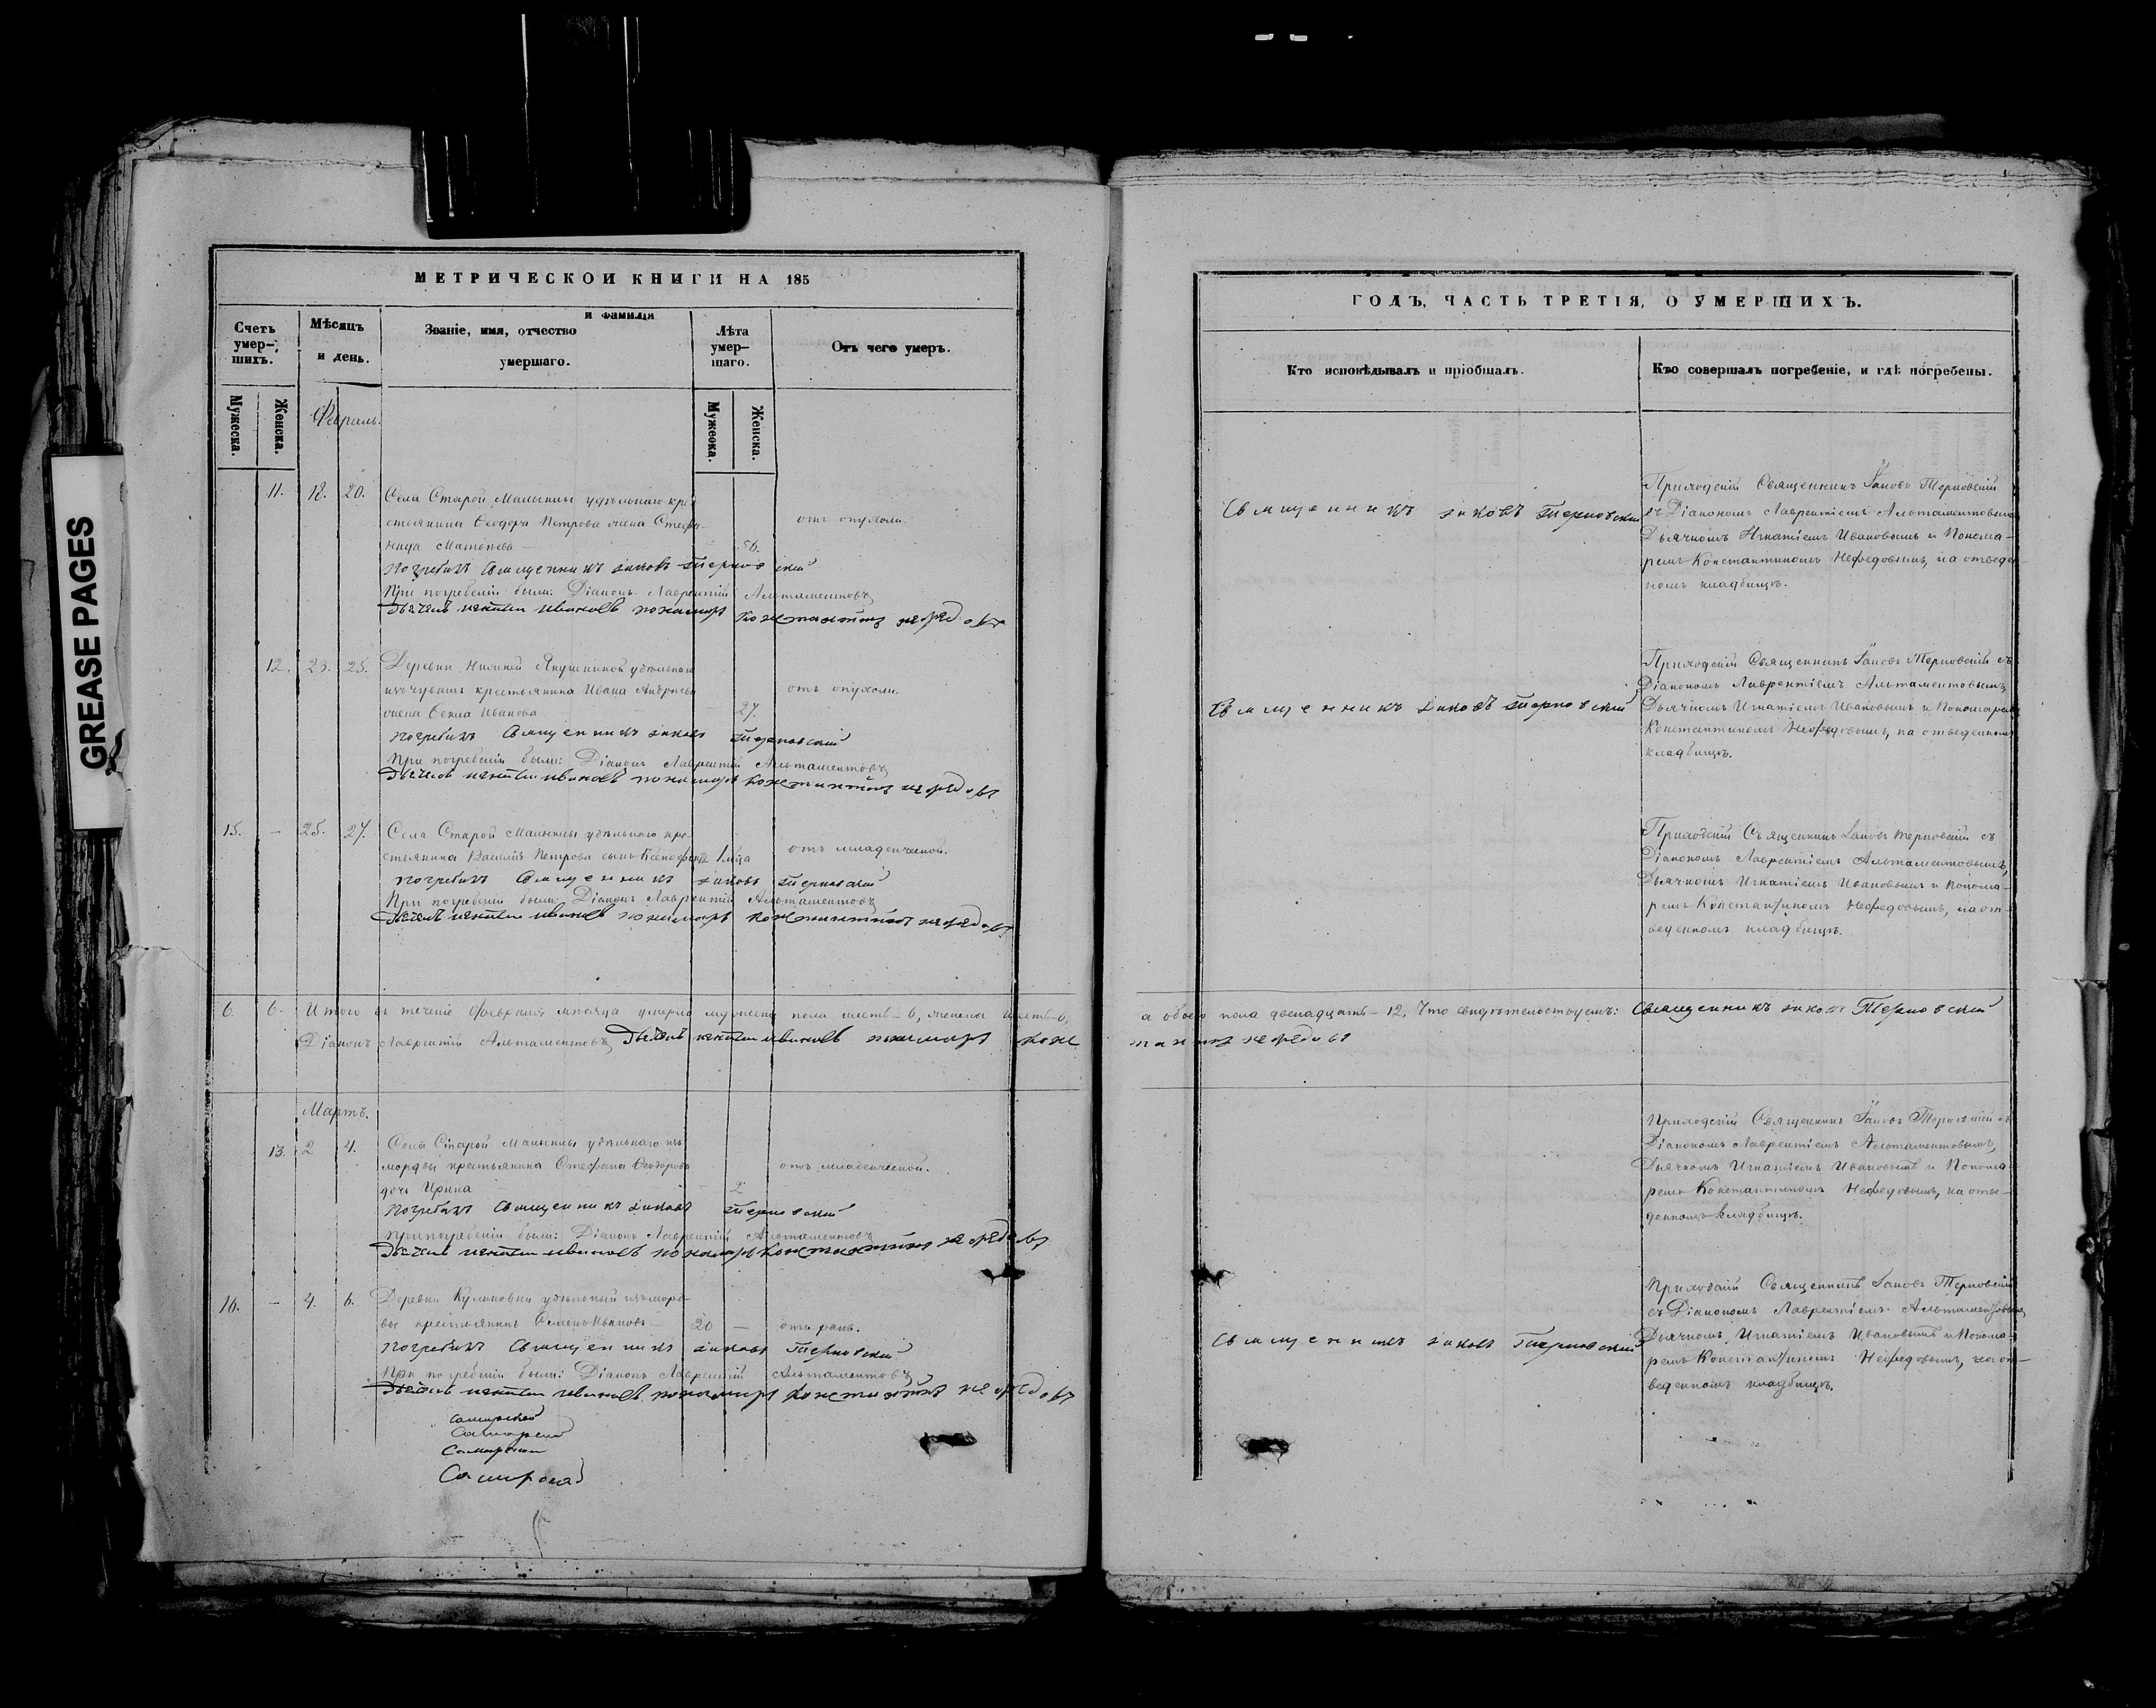 GREASE PAGES
МЕТРИЧЕСКОЙ КНИГИ НА 185
Счетъ умер-шихъ.
Мѣсяцъ и день.
Званіе, имя, отчество и фамилія умершаго.
Лѣта умер-шаго.
Отъ чего умеръ.
Мужеска.
Женска.
Мужеска.
Женска.
Февраль.
11. 18. 20. Села Старой Малыклы удѣльнаго кре-
стьянина Ѳеодора Петрова жена Стефа-
нида Матвѣева — 56. отъ опухоли.
Погребалъ Священникъ Іаковъ Терновскій
При погребеніи были: Діаконъ Лаврентій Альтаментовъ
Дьячекъ Игнатій Ивановъ Пономарь Константинъ Нефедовъ
12. 23. 25. Деревни Нижней Якушкиной удѣльнаго
изъ чувашъ крестьянина Ивана Андреева
жена Ѳекла Иванова 27. отъ опухоли.
Погребалъ Священникъ Іаковъ Терновскій
При погребеніи были: Діаконъ Лаврентій Альтаментовъ
Дьячекъ Игнатій Ивановъ Пономарь Константинъ Нефедовъ
15. — 25. 27. Села Старой Малыклы удѣльнаго кре-
стьянина Василія Петрова сынъ Ксенофонтъ отъ младенческой.
Погребалъ Священникъ Іаковъ Терновскій
При погребеніи были: Діаконъ Лаврентій Альтаментовъ
Дьячекъ Игнатій Ивановъ Пономарь Константинъ Нефедовъ
6. 6. Итого въ теченіе Февраля мѣсяца умерло мужеска пола шесть — 6, женска шесть — 6,
Діаконъ Лаврентій Альтаментовъ Дьячекъ Игнатій Ивановъ Пономарь Конс
Мартъ.
13. 2 4. Села Старой Малыклы удѣльнаго изъ
мордвы крестьянина Стефана Ѳеодорова
дочь Ирина 2 отъ младенческой.
Погребалъ Священникъ Іаковъ Терновскій
При погребеніи были: Діаконъ Лаврентій Альтаментовъ
Дьячекъ Игнатій Ивановъ Пономарь Константинъ Нефедовъ
16. — 4. 6. Деревни удѣльный изъ морд-
вы крестьянинъ Семенъ Ивановъ — 20 — отъ ранъ.
Погребалъ Священникъ Іаковъ Терновскій
При погребеніи были: Діаконъ Лаврентій Альтаментовъ
Дьячекъ Игнатій Ивановъ Пономарь Константинъ Нефедовъ
ГОДЪ, ЧАСТЬ ТРЕТІЯ, О УМЕРШИХЪ.
Кто исповѣдывалъ и пріобщалъ.
Кто совершалъ погребеніе, и гдѣ погребены.
Священникъ Іаковъ Терновскій
Приходскій Священникъ Іаковъ Терновскій
съ Діакономъ Лаврентіемъ Альтаментовымъ
Дьячкомъ Игнатіемъ Ивановымъ и Понома-
ремъ Константиномъ Нефедовымъ, на отведен-
номъ кладбищѣ.
Священникъ Іаковъ Терновскій
Приходскій Священникъ Іаковъ Терновскій съ
Діакономъ Лаврентіемъ Альтаментовымъ,
Дьячкомъ Игнатіемъ Ивановымъ и Пономаремъ
Константиномъ Нефедовымъ, на отведенномъ
кладбищѣ.
Приходскій Священникъ Іаковъ Терновскій съ
Діакономъ Лаврентіемъ Альтаментовымъ,
Дьячкомъ Игнатіемъ Ивановымъ и Понома-
ремъ Константиномъ Нефедовымъ, на от-
веденномъ кладбищѣ.
а обоего пола двенадцать — 12, Что свидѣтельствуемъ: Священникъ Іаковъ Терновскій
тантинъ Нефедовъ
Приходскій Священникъ Іаковъ Терновскій съ
Діакономъ Лаврентіемъ Альтаментовымъ,
Дьячкомъ Игнатіемъ Ивановымъ и Понома-
ремъ Константиномъ Нефедовымъ, на отве-
денномъ кладбищѣ.
Священникъ Іаковъ Терновскій
Приходскій Священникъ Іаковъ Терновскій
съ Діакономъ Лаврентіемъ Альтаментовымъ,
Дьячкомъ Игнатіемъ Ивановымъ и Понома-
ремъ Константиномъ Нефедовымъ, на от-
веденномъ кладбищѣ.